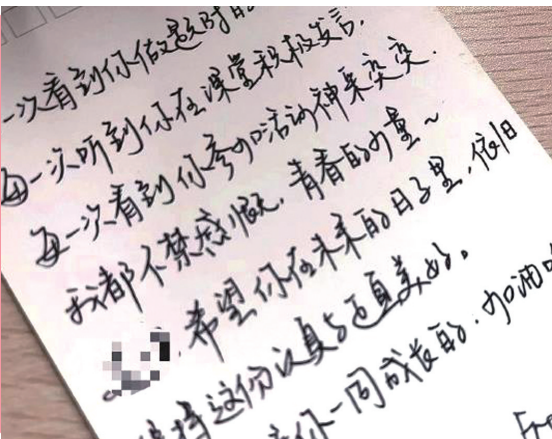 一次看到你做题时的
每一次听到你在课堂积极发言.
每一次看到你参加活动神采奕奕.
我都不禁感慨. 青春的力量~
希望你在未来的日子里, 依旧
保持这份认真与追美好。
你一同成长的. 加油
Fro